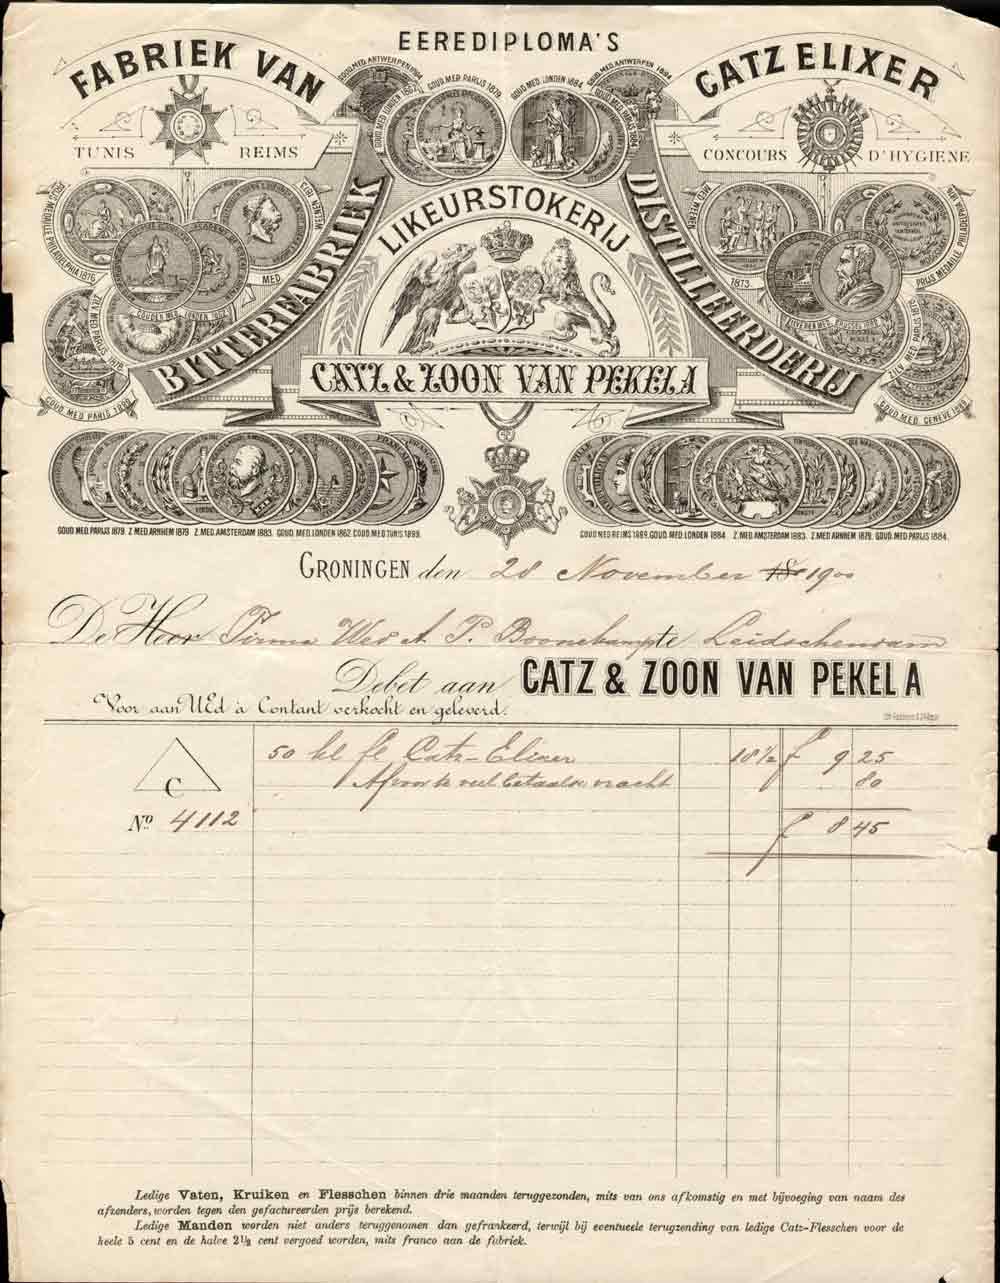 EEREDIPLOMA'S
FABRIEK VAN
CATZ ELIXER
TUNIS REIMS
CONCOURS D'HYGIENE
GOUD. MED. ANTWERPEN 1894
GOUD. MED. LONDEN 1862
GOUD. MED. PARIJS 1879.
GOUD. MED. LONDEN 1884.
GOUD. MED. ANTWERPEN 1894
GOUD. MED. LONDEN 1884
LIKEURSTOKERIJ
BITTERFABRIEK
DISTILLEERDERIJ
PRIJS MEDAILLE PHILADELPHIA 1876.
MED. WEENEN 1873
MED. WEENEN
1873.
PRIJS MEDAILLE PHILADELPHIA 1876
ZILV. MED. PARIJS 1878.
GOUD. MED. PARIS 1890
ZILV. MED. PARIJS 1878
GOUD. MED. GENEVE 1889
CATZ & ZOON VAN PEKELA
GOUD. MED. PARIJS 1879. Z. MED. ARNHEM 1879 Z. MED. AMSTERDAM 1883. GOUD. MED. LONDEN 1862. GOUD. MED. TUNIS 1899.
GOUD. MED. REIMS 1899. GOUD. MED. LONDEN 1884. Z. MED. AMSTERDAM 1883. Z. MED. ARNHEM 1879. GOUD. MED. PARIJS 1884.
GRONINGEN den 28 November 18 1900
De Heer Firma Wed A. P. Boonekamp te Leidschendam
Debet aan CATZ & ZOON VAN PEKELA
Voor aan UEd à Contant verkocht en geleverd.
50 hl fl Catz-Elixer 18 1/2 f 9 25
Af voor te veel betaalde vracht 80
C
No 4112
f 8 45
Ledige Vaten, Kruiken en Flesschen binnen drie maanden teruggezonden, mits van ons afkomstig en met bijvoeging van naam des
afzenders, worden tegen den gefactureerden prijs berekend.
Ledige Manden worden niet anders teruggenomen dan gefrankeerd, terwijl bij eventueele terugzending van ledige Catz-Flesschen voor de
heele 5 cent en de halve 2½ cent vergoed worden, mits franco aan de fabriek.